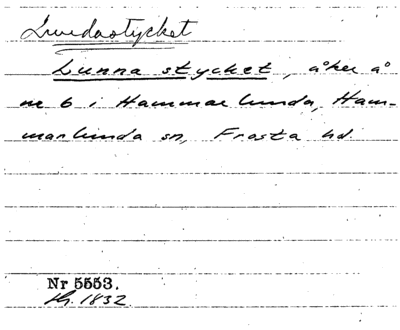 Lundastycket
Lunna stycket, åker å
nr 6 i Hammarlunda, Ham-
marlunda sn, Frosta hd.
Nr 5553.
1832